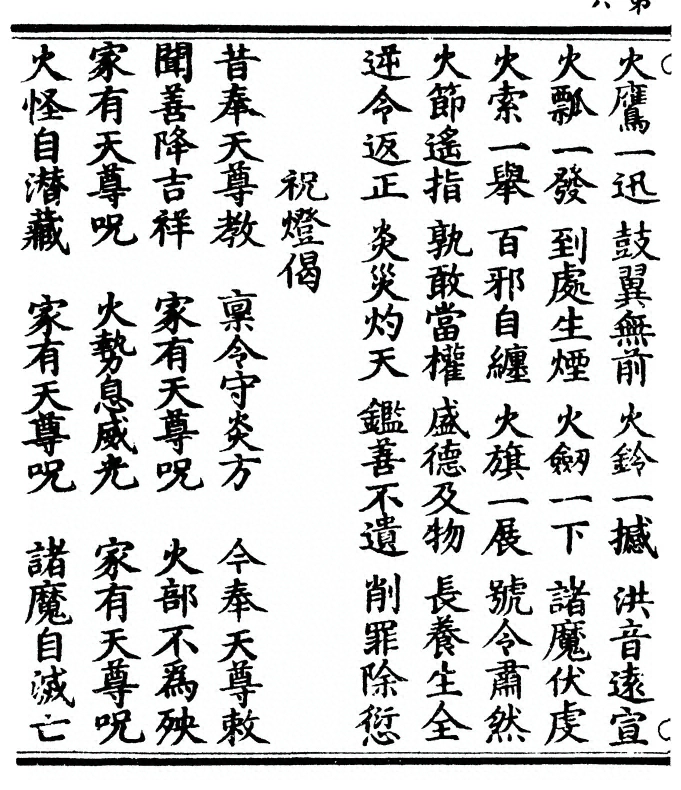 火鷹一迅　鼓翼無前　火鈴一撼　洪音遠宣
火瓢一發　到處生煙　火劒一下　諸魔伏虔
火索一舉　百邪自纏　火旗一展　號令肅然
火節遙指　孰敢當權　盛德及物　長養生全
逆令返正　炎災灼天　鑑善不遺　削罪除愆
祝燈偈
昔奉天尊教　稟令守炎方　今奉天尊敕
聞善降吉祥　家有天尊呪　火部不為殃
家有天尊呪　火勢息威光　家有天尊呪
火怪自潛藏　家有天尊呪　諸魔自滅亡